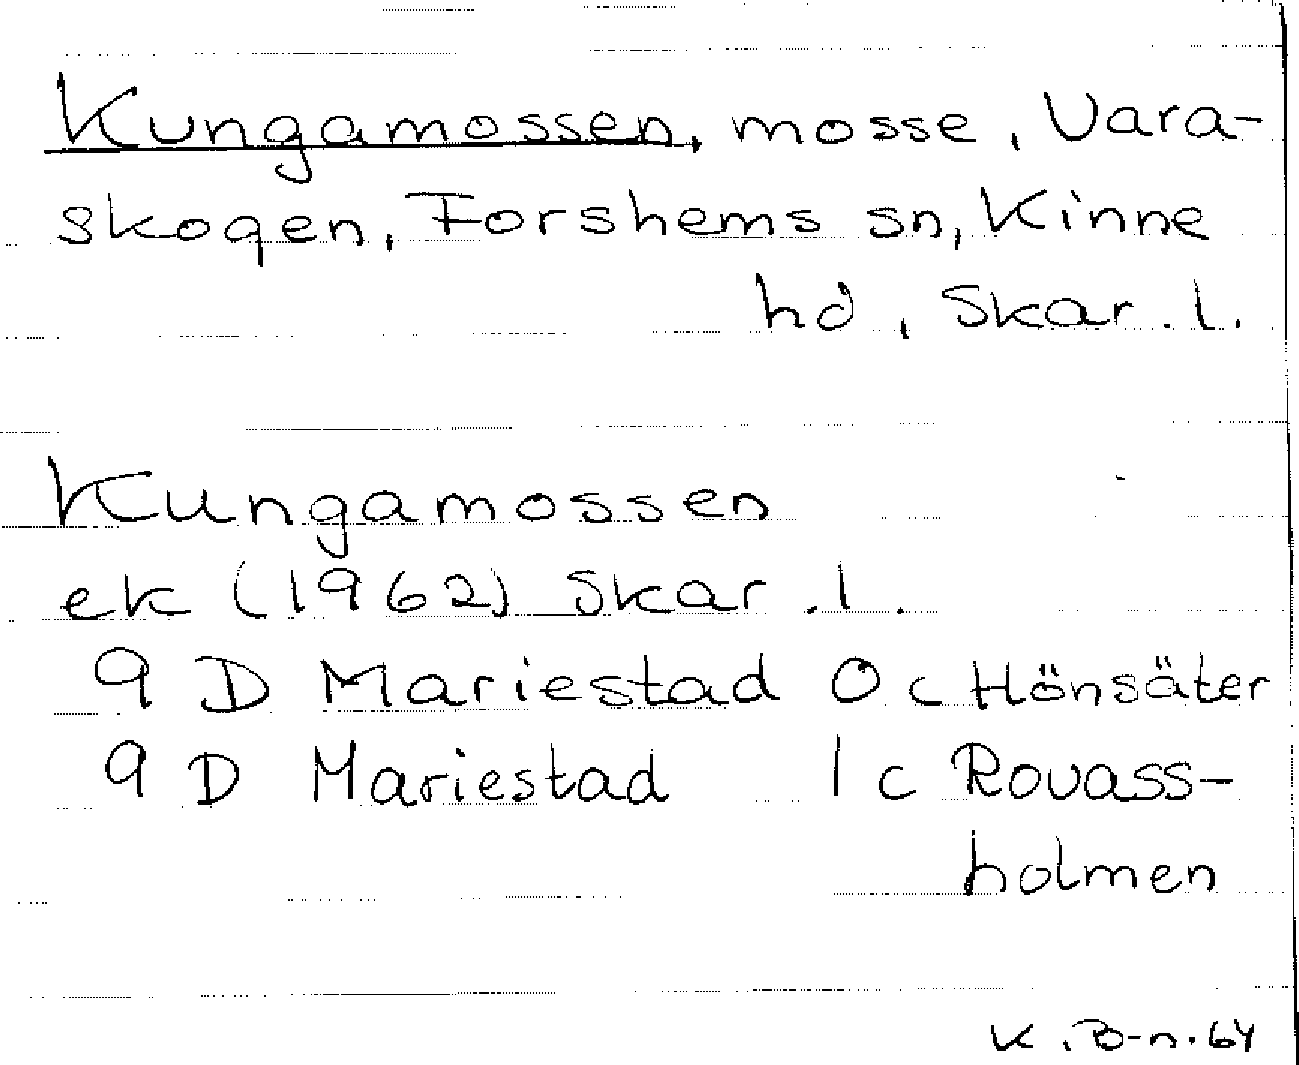 Kungamossen, mosse, Vara-
skogen, Forshems sn, Kinne
hd, Skar. l.
Kungamossen
ek (1962) Skar. l.
9 D Mariestad 0 c Hönsäter
9 D Mariestad 1 c Rovass-
holmen
K. B-n. 64